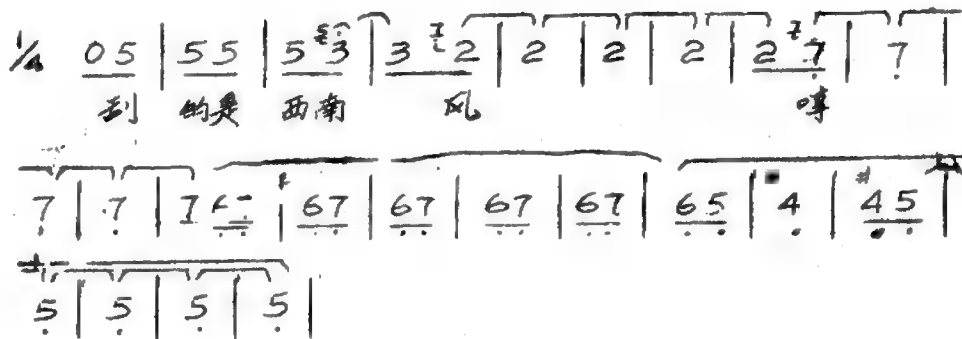 1/4 05 | 55 | 53 | 3 2 | 2 | 2 | 2 | 2 7 | 7 |
到 的是 西南 风 哼
7 | 7 | 7 | 67 | 67 | 67 | 67 | 65 | 4 | #45 |
5 | 5 | 5 | 5 |